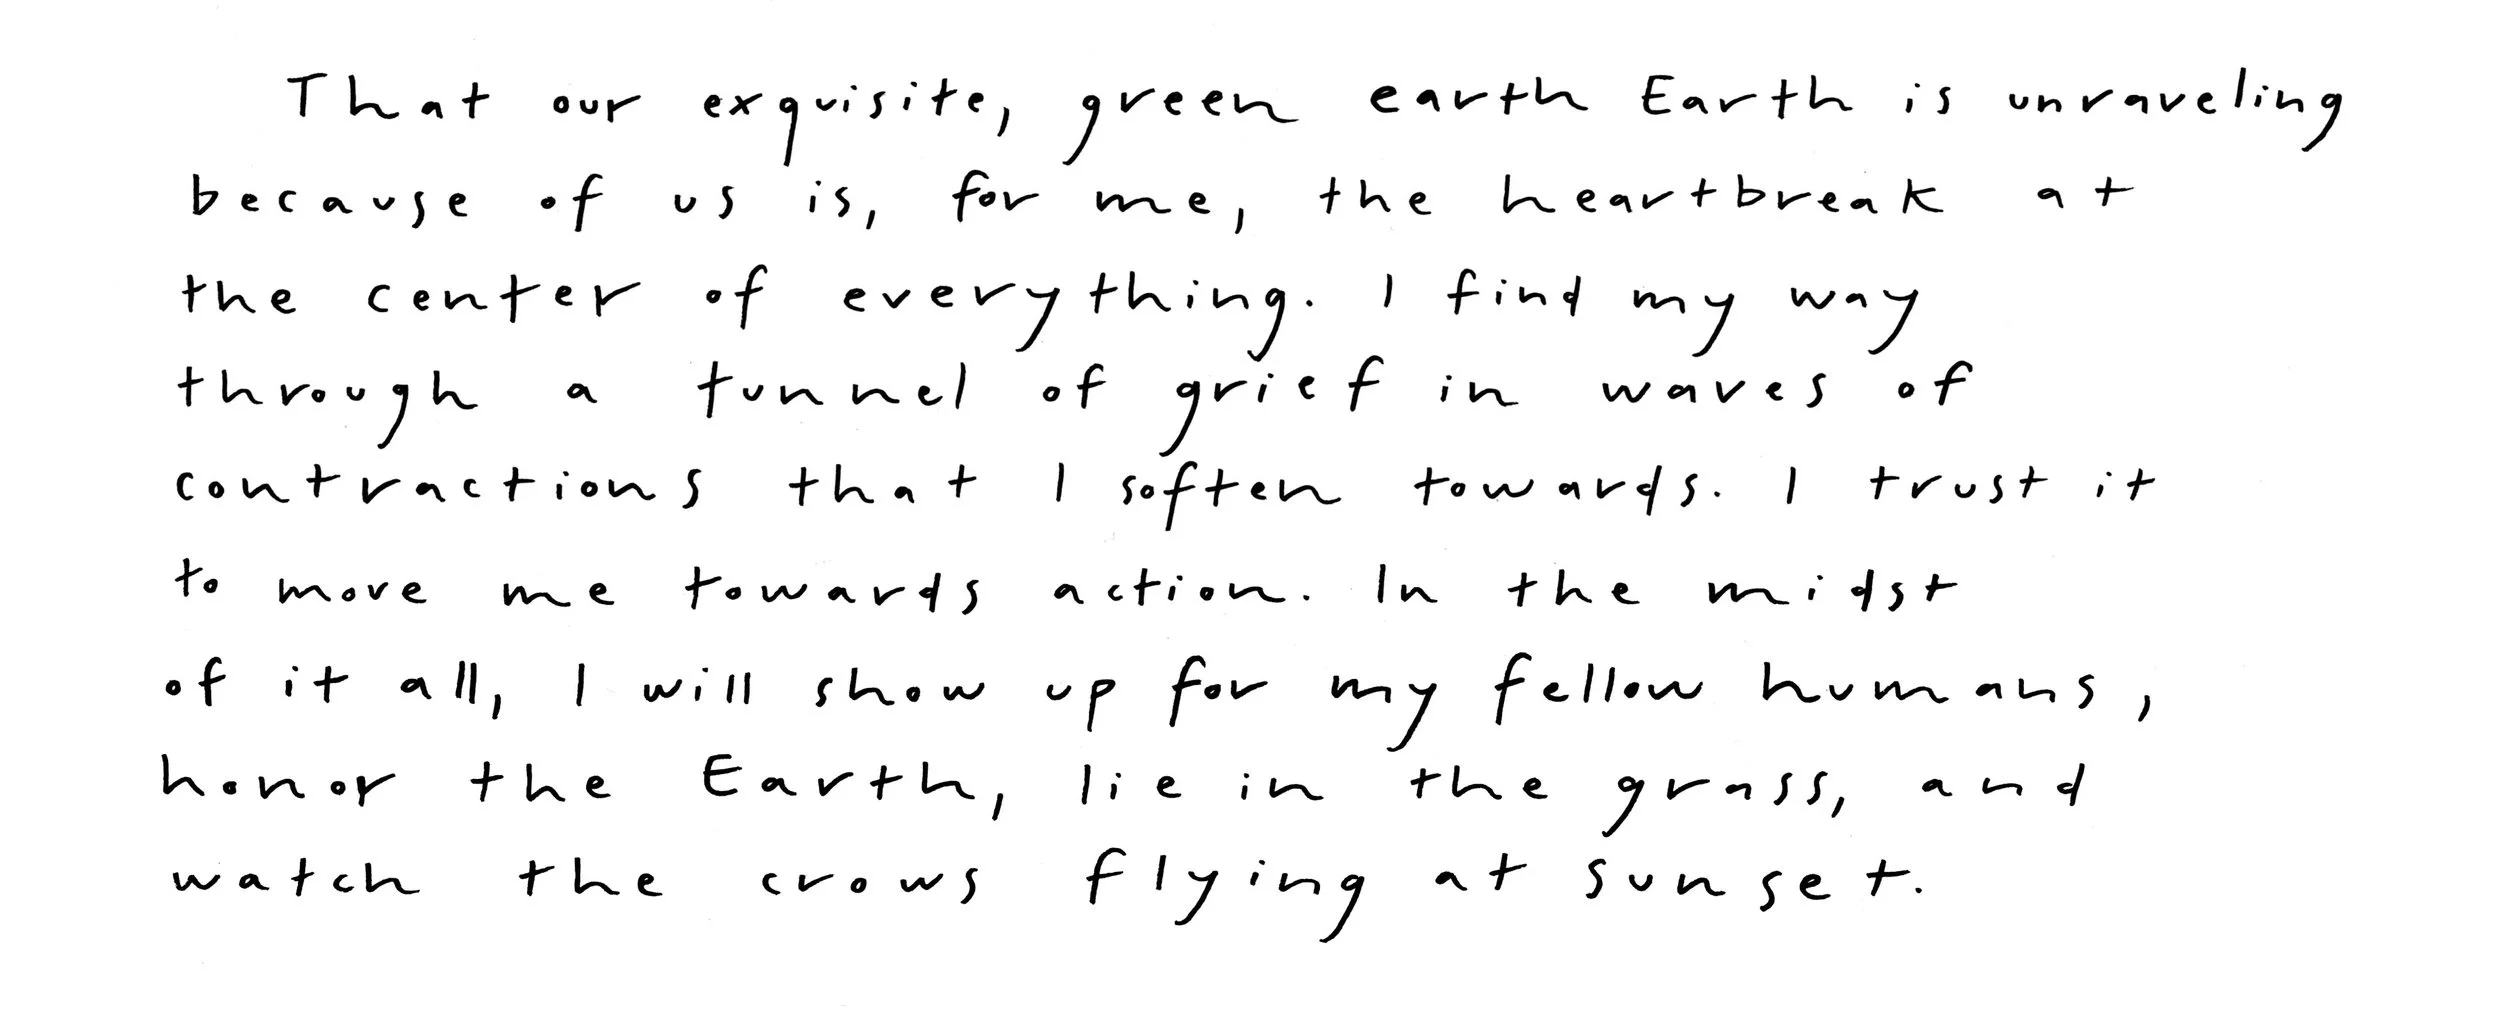 That our exquisite, green earth Earth is unraveling
because of us is, for me, the heartbreak at
the center of everything. I find my way
through a tunnel of grief in waves of
contractions that I soften towards. I trust it
to move me towards action. In the midst
of it all, I will show up for my fellow humans,
honor the Earth, lie in the grass, and
watch the crows flying at sunset.